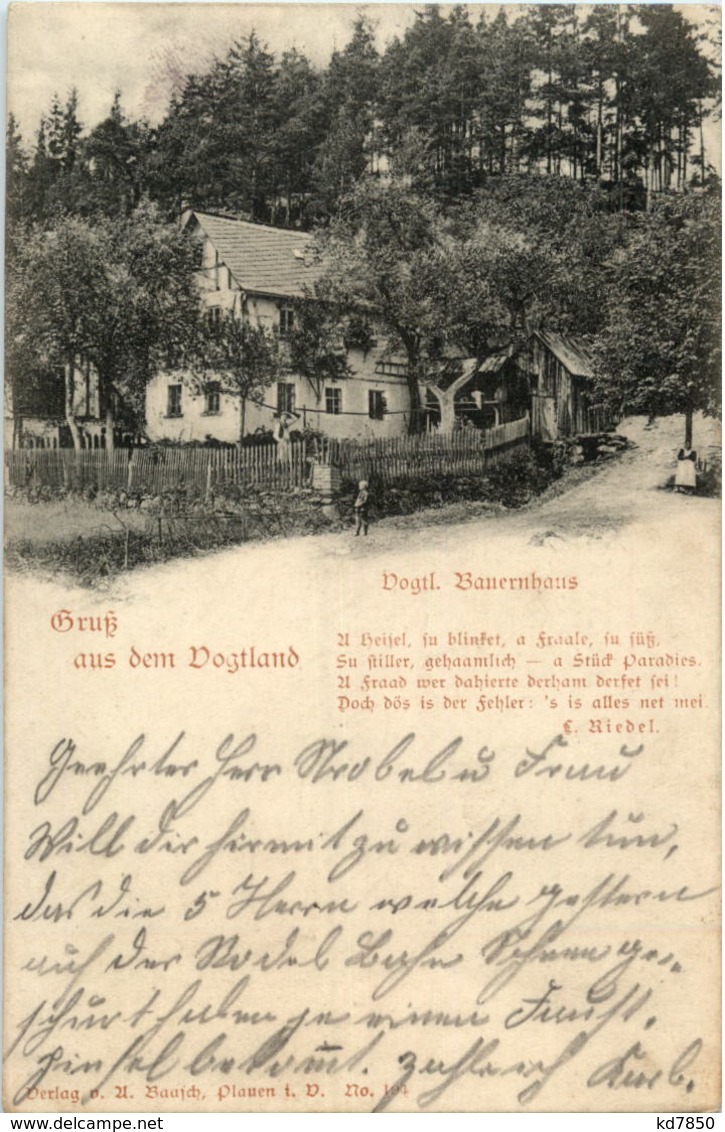 Vogtl. Bauernhaus
Gruß
aus dem Vogtland
A Heisel, su blinket, a Fraale, su süß,
Su stiller, gehaamlich — a Stück Paradies.
A Fraad wer dahierte derham derfet sei!
Doch dös is der Fehler: 's is alles net mei.
C. Riedel.
Geehrter Herr Strobel u Frau
Will dir hirmit zu wissen tun,
das die 5 Herrn welche gestern
auf der Rodel Bahn Schnee ge-
schurt haben je einen Faust.
pinsel bekomt.
Verlag v. A. Baasch, Plauen i. V. No. 104
kd7850